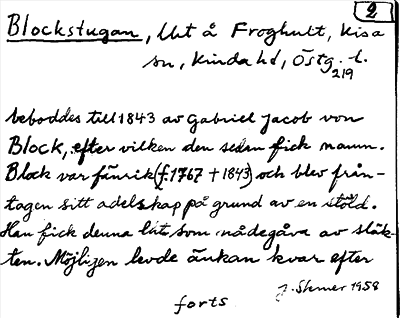 2
Blockstugan, lht å Froghult, Kisa
sn, Kinda hd, Östg. l.
219
beboddes till 1843 av Gabriel Jacob von
Block, efter vilken den sedan fick namn.
Block var fänrik (f. 1767 + 1843) och blev från-
tagen sitt adelskap på grund av en stöld.
Han fick denna lht som nådegåva av släk-
ten. Möjligen levde änkan kvar efter
forts